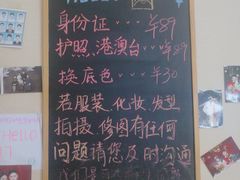 身份证···¥89
护照.港澳台··¥89
换底色···¥30
若服装.化妆.发型
拍摄.修图有任何
问题请您及时沟通